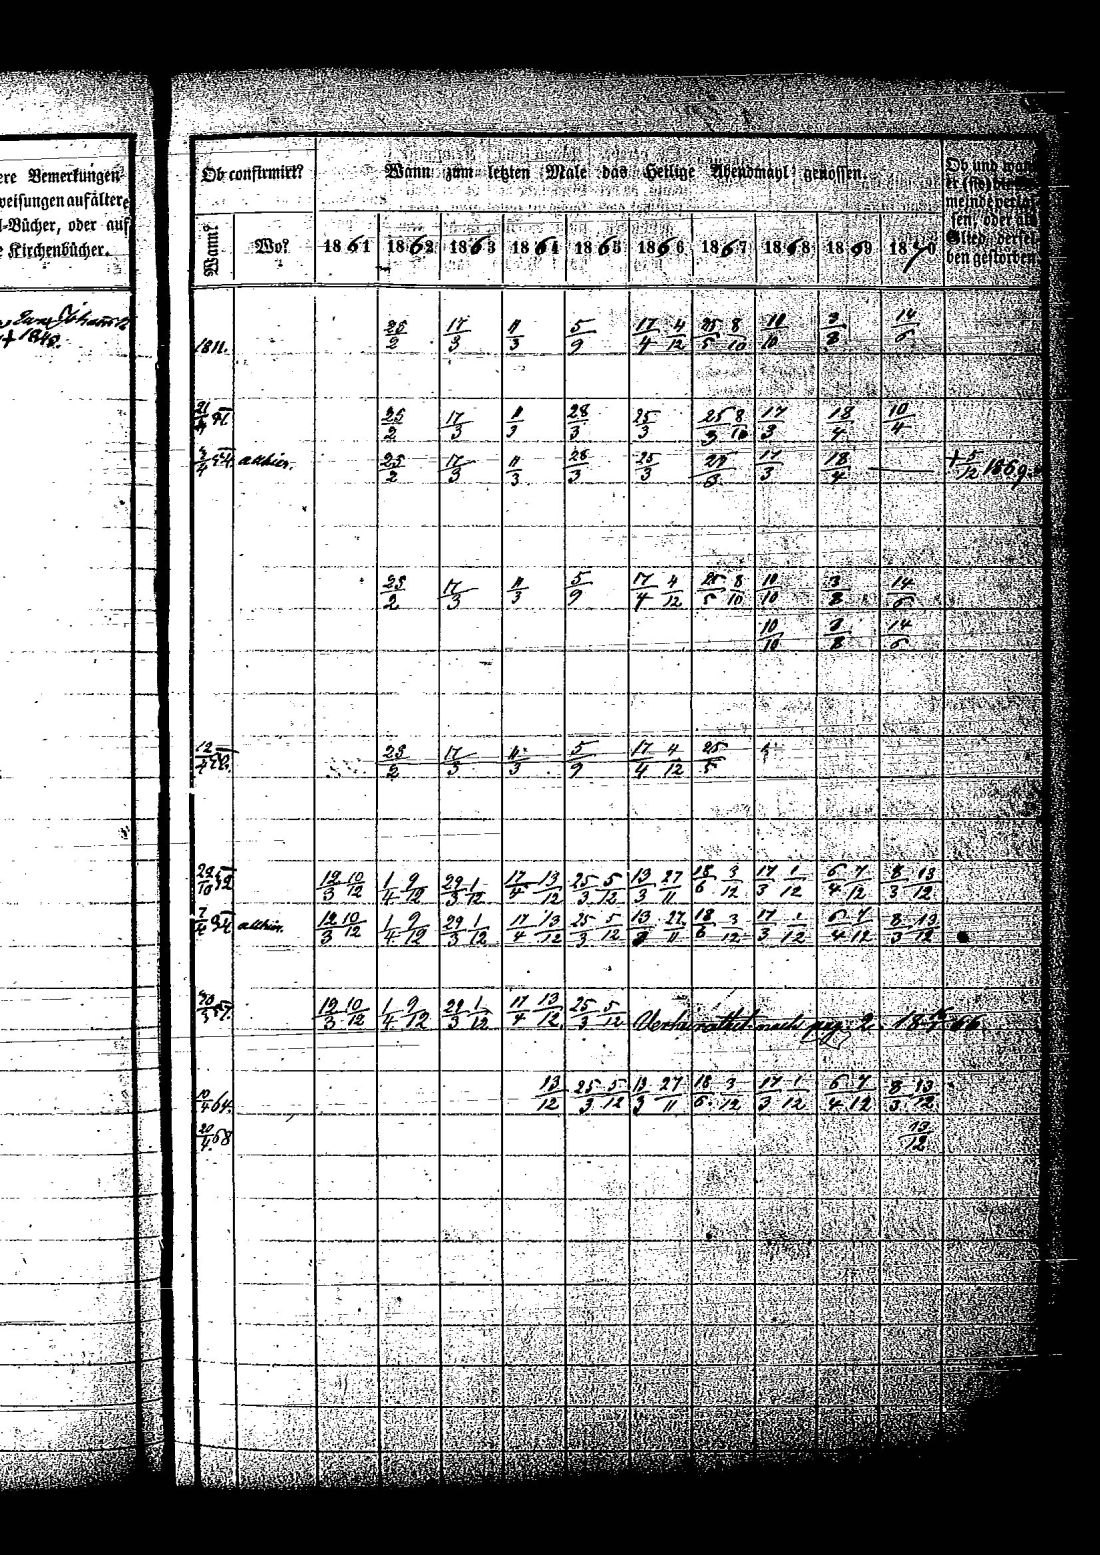 ere Bemerkungen
weisungen auf ältere
l-Bücher, oder auf
e Kirchenbücher.
1848.
Ob confirmirt?
Wann zum letzten Male das Heilige Abendmahl genossen.
Wann? Wo? 1861 1862 1863 1864 1865 1866 1867 1868 1869 1870
Ob und wann
er (sie)
meinde verlas-
sen, oder als
Glied dersel-
ben gestorben.
1811. 25/2 17/3 11/3 5/9 17/4 4/12 25/5 8/10 10/10 8/8 14/6
25/2 17/3 11/3 28/3 25/3 25/3 8/10 17/3 18/4 10/4
allhier. 25/2 17/3 11/3 28/3 25/3 17/3 18/4 — † 5/12 1869.
25/2 17/3 11/3 5/9 17/4 4/12 25/5 8/10 10/10 8/8 14/6
10/10 8/8 14/6
25/2 17/3 11/3 5/9 17/4 4/12 25/5
19/3 10/12 1/4 9/12 29/3 1/12 17/4 13/12 25/3 5/12 13/3 27/11 18/6 3/12 17/3 1/12 6/4 7/12 8/3 13/12
allhier. 19/3 10/12 1/4 9/12 29/3 1/12 17/4 13/12 25/3 5/12 13/3 27/11 18/6 3/12 17/3 1/12 6/4 7/12 8/3 13/12
19/3 10/12 1/4 9/12 29/3 1/12 17/4 13/12 25/3 5/12 Verheirathet nach pag. 2 66.
10/4 64. 13/12 25/3 5/12 13/3 27/11 18/6 3/12 17/3 1/12 6/4 7/12 8/3 13/12
20/4 68 13/12